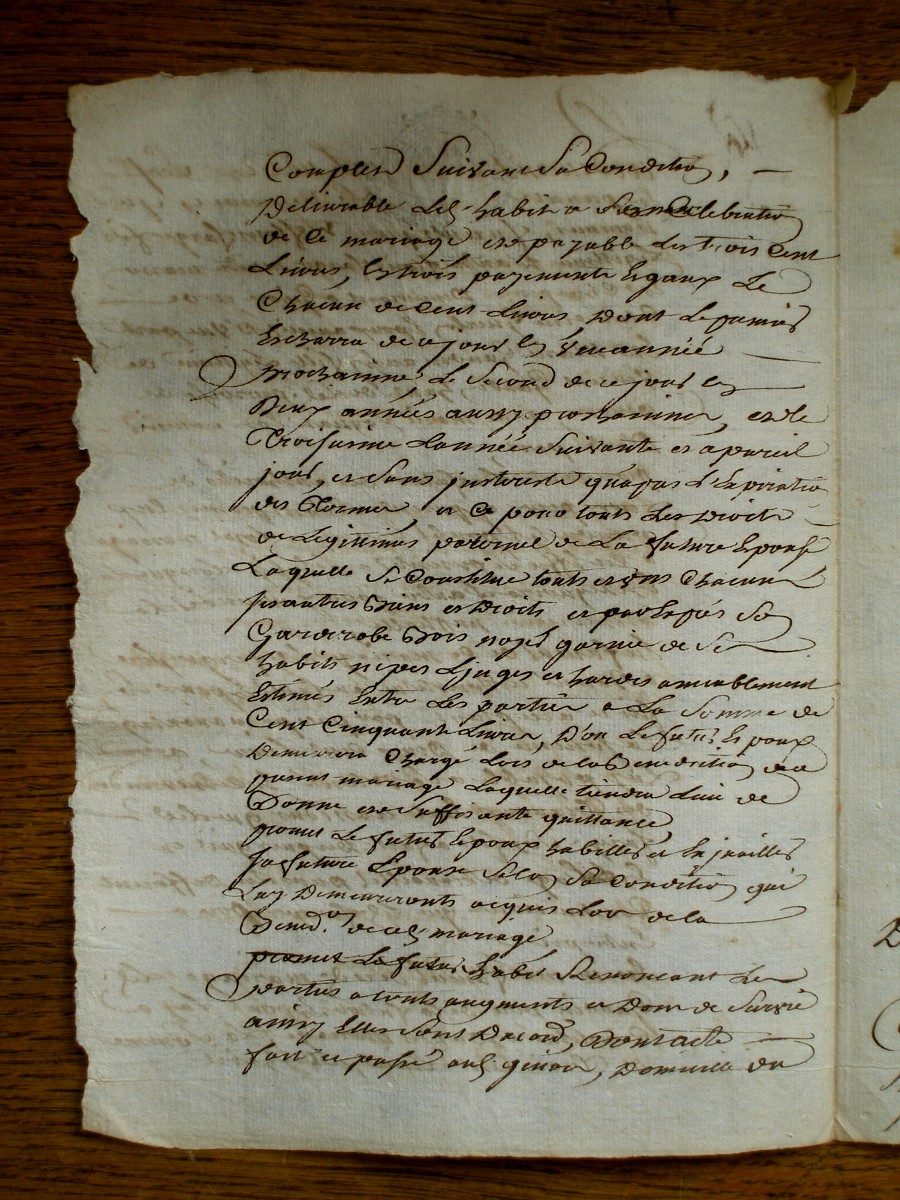 Complet Suivant Sa Condition, —
Delivrable led. habit a la Celebration
de Ce mariage et payable les trois Cent
Livres, En trois payements Egaux de
Chacun de Cent Livres Dont Le premier
Escherra de ce jour En Une année —
prochainne Le Second de ce jour En
Deux années aussy prochainnes, et le
Troisieme L'année Suivante et a pareil
jour, et Sans Interest jusques l'Expiration
des Termes, et Ce pour touts Les Droits
de Legitimes paternel de La future Epouse
Laquelle Se Constitue touts et uns Chacuns
ses autres Biens et Droits et par Exprés Sa
Garderobe Bois noyé garnie de Ses
habits nipes Linges et hardes ameublement
Estimés Entre Les parties a La Somme de
Cent Cinquante Livres, D'on Le futur Epoux
Demeurera Chargé Lors de la Benediction du
present mariage Laquelle tiendra Lieu de
Bonne et Suffisante quittance,
promet Le futur Epoux habiller et Enjoailler
Sa future Epouse Selon Sa Condition qui
Luy Demeureront acquis Lors de la
Bened.on de ced. mariage
promet Le futur habit Renonceant Les
parties a touts augments et Dons de Survie
ainsy Elles Sont Dacord, Dont acte —
fait et passé aud. , Domicille du